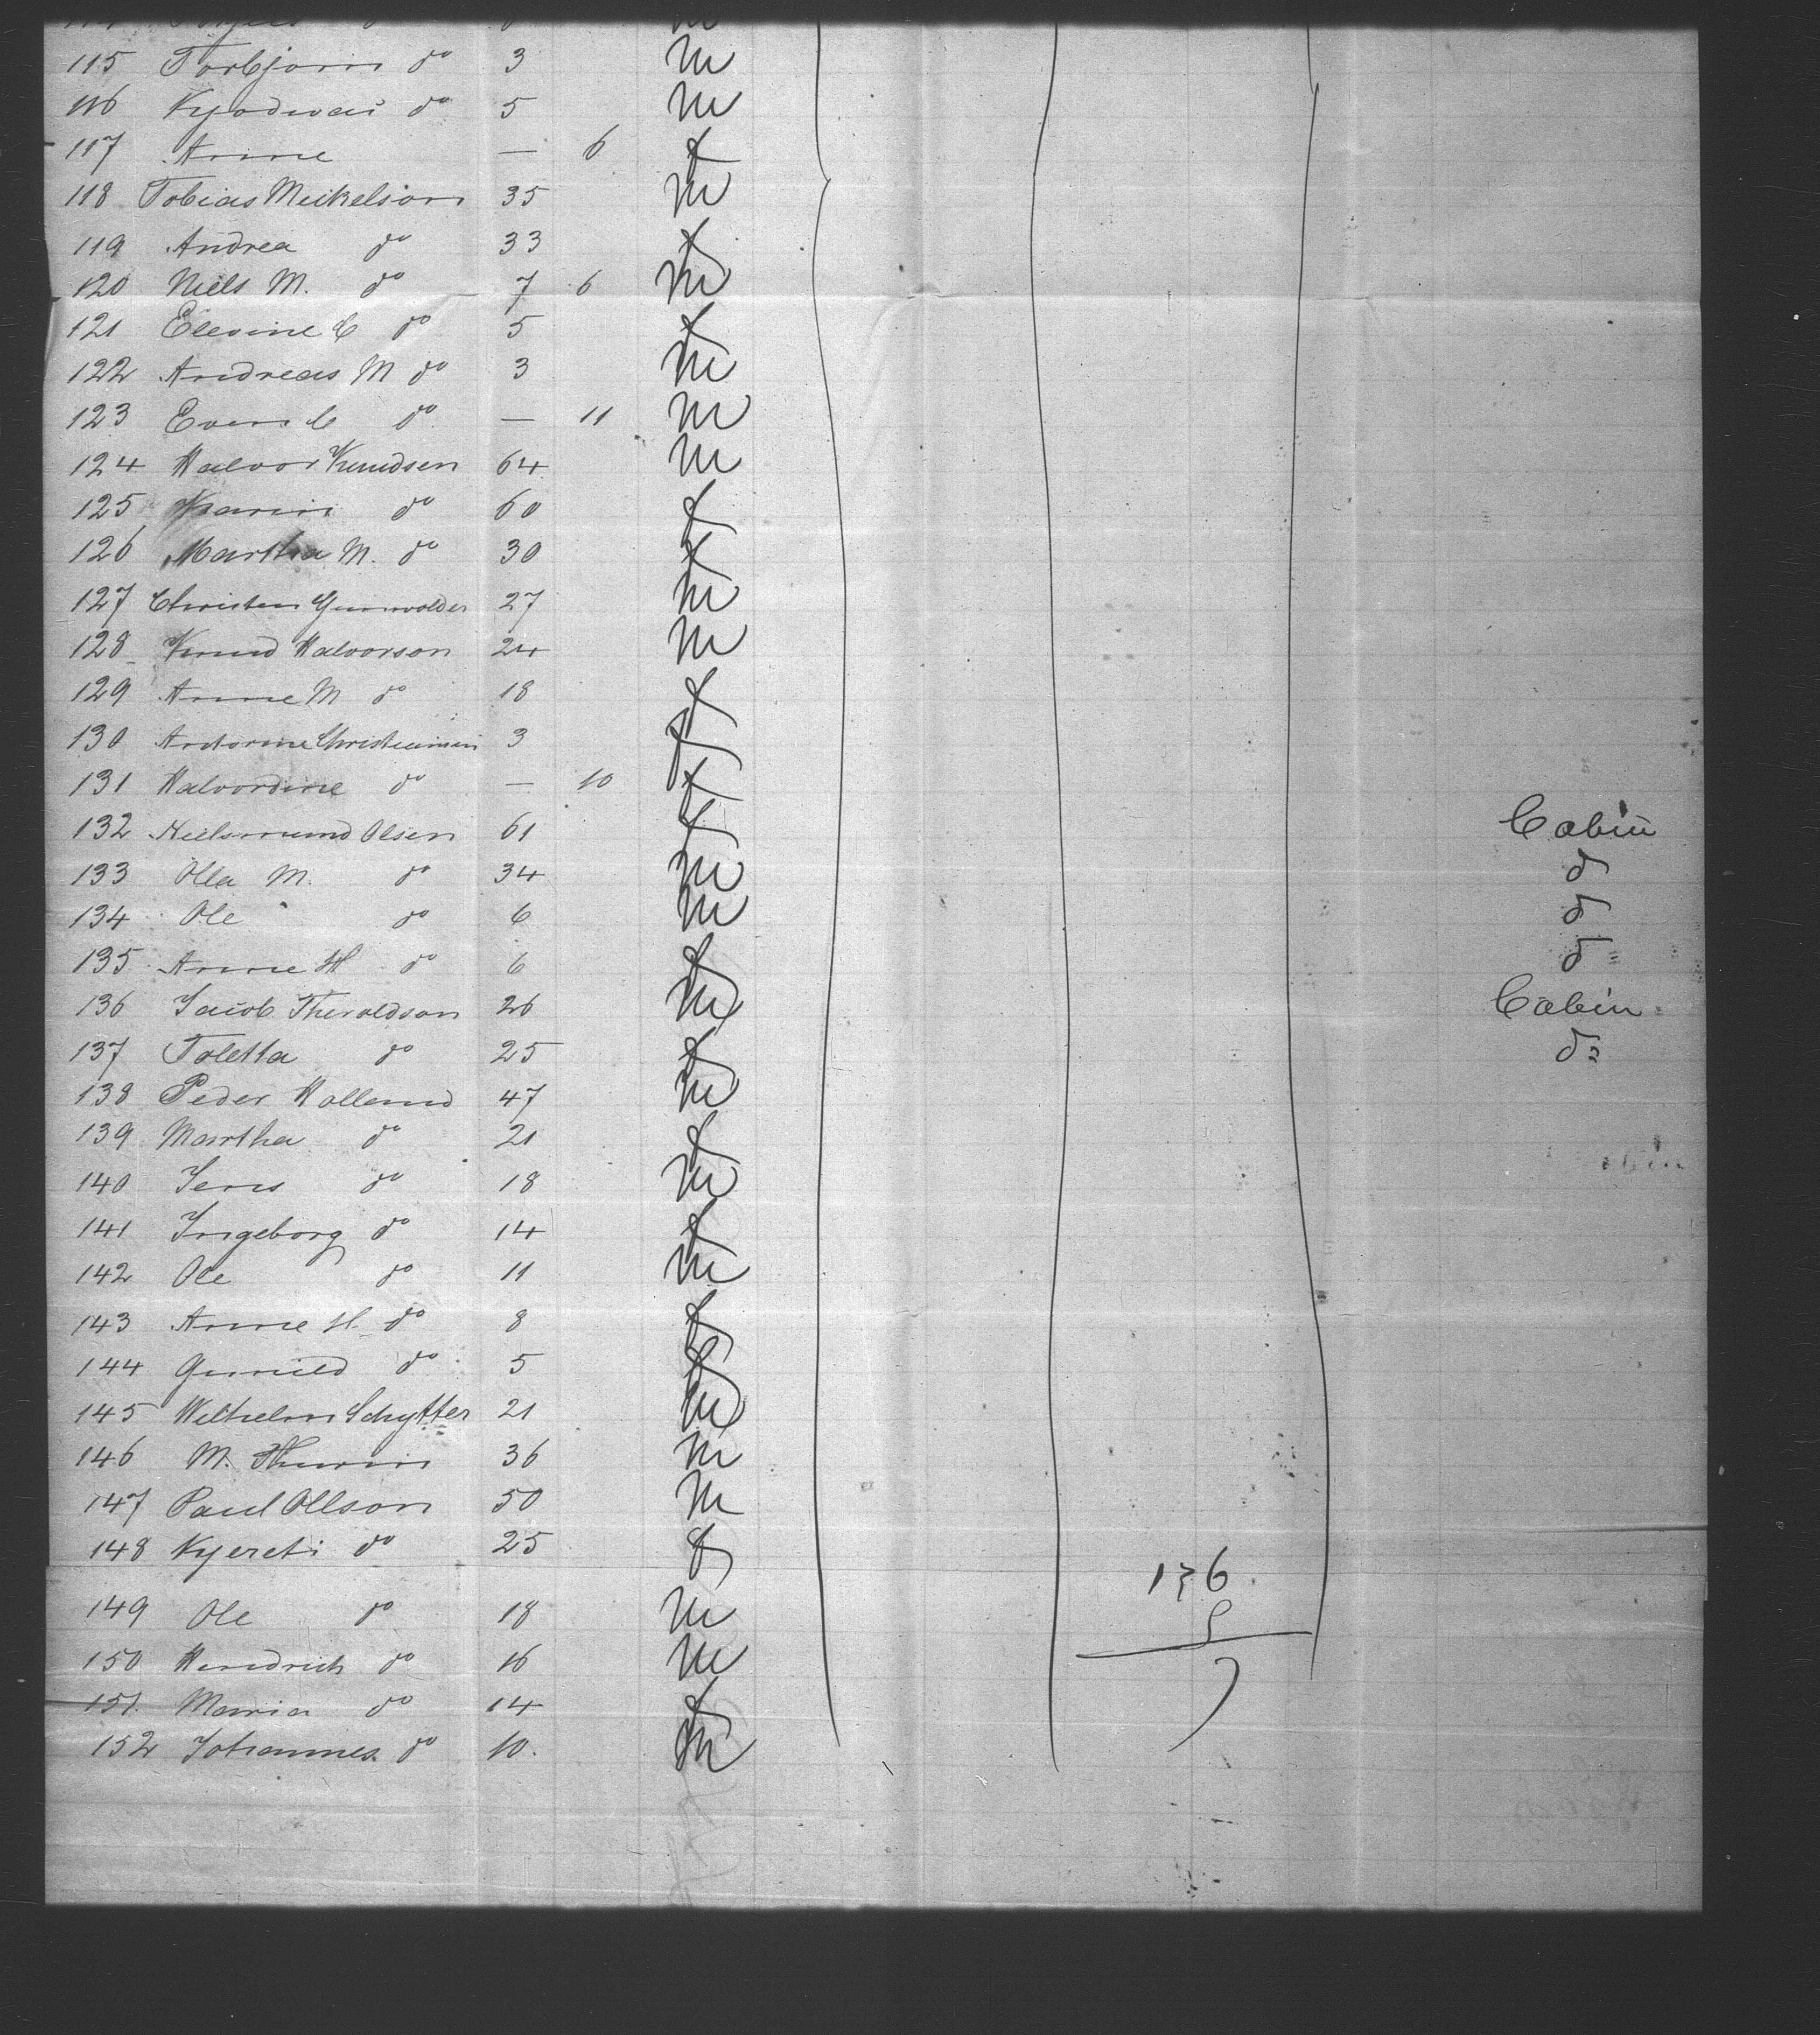 115 Torbjorn do 3 m
116 Kjodvai do 5 m
117 Anne — 6 f
118 Tobias Meikelson 35 m
119 Andrea do 33 f
120 Niels M. do 7 6 m
121 Elevine C do 5 f
122 Andreas M do 3 m
123 Even C do — 11 m
124 Halvor Knudsen 64 m
125 Karin do 60 f
126 Martha M. do 30 f
127 Christen Gunwolder 27 m
128 Knud Halvorson 24 m
129 Anne M do 18 f
130 Antorine Christiansen 3 f
131 Halvordine do — 10 f
132 Nielsmund Olsen 61 f Cabin
133 Olla M. do 34 m do
134 Ole do 6 m do
135 Anne H do 6 f do
136 Jacob Theroldson 26 m Cabin
137 Toletta do 25 f do
138 Peder Hollund 47 m
139 Martha do 21 f
140 Jens do 18 m
141 Ingeborg do 14 f
142 Ole do 11 m
143 Anne H. do 8 f
144 Gunild do 5 f
145 Wilhelm Schytter 21 m
146 M. 36 m
147 Paul Ollson 50 m
148 Kjereti do 25 f
149 Ole do 18 m
136
150 Hendrich do 16 m
151 Maria do 14 f
152 Johannes do 10. m